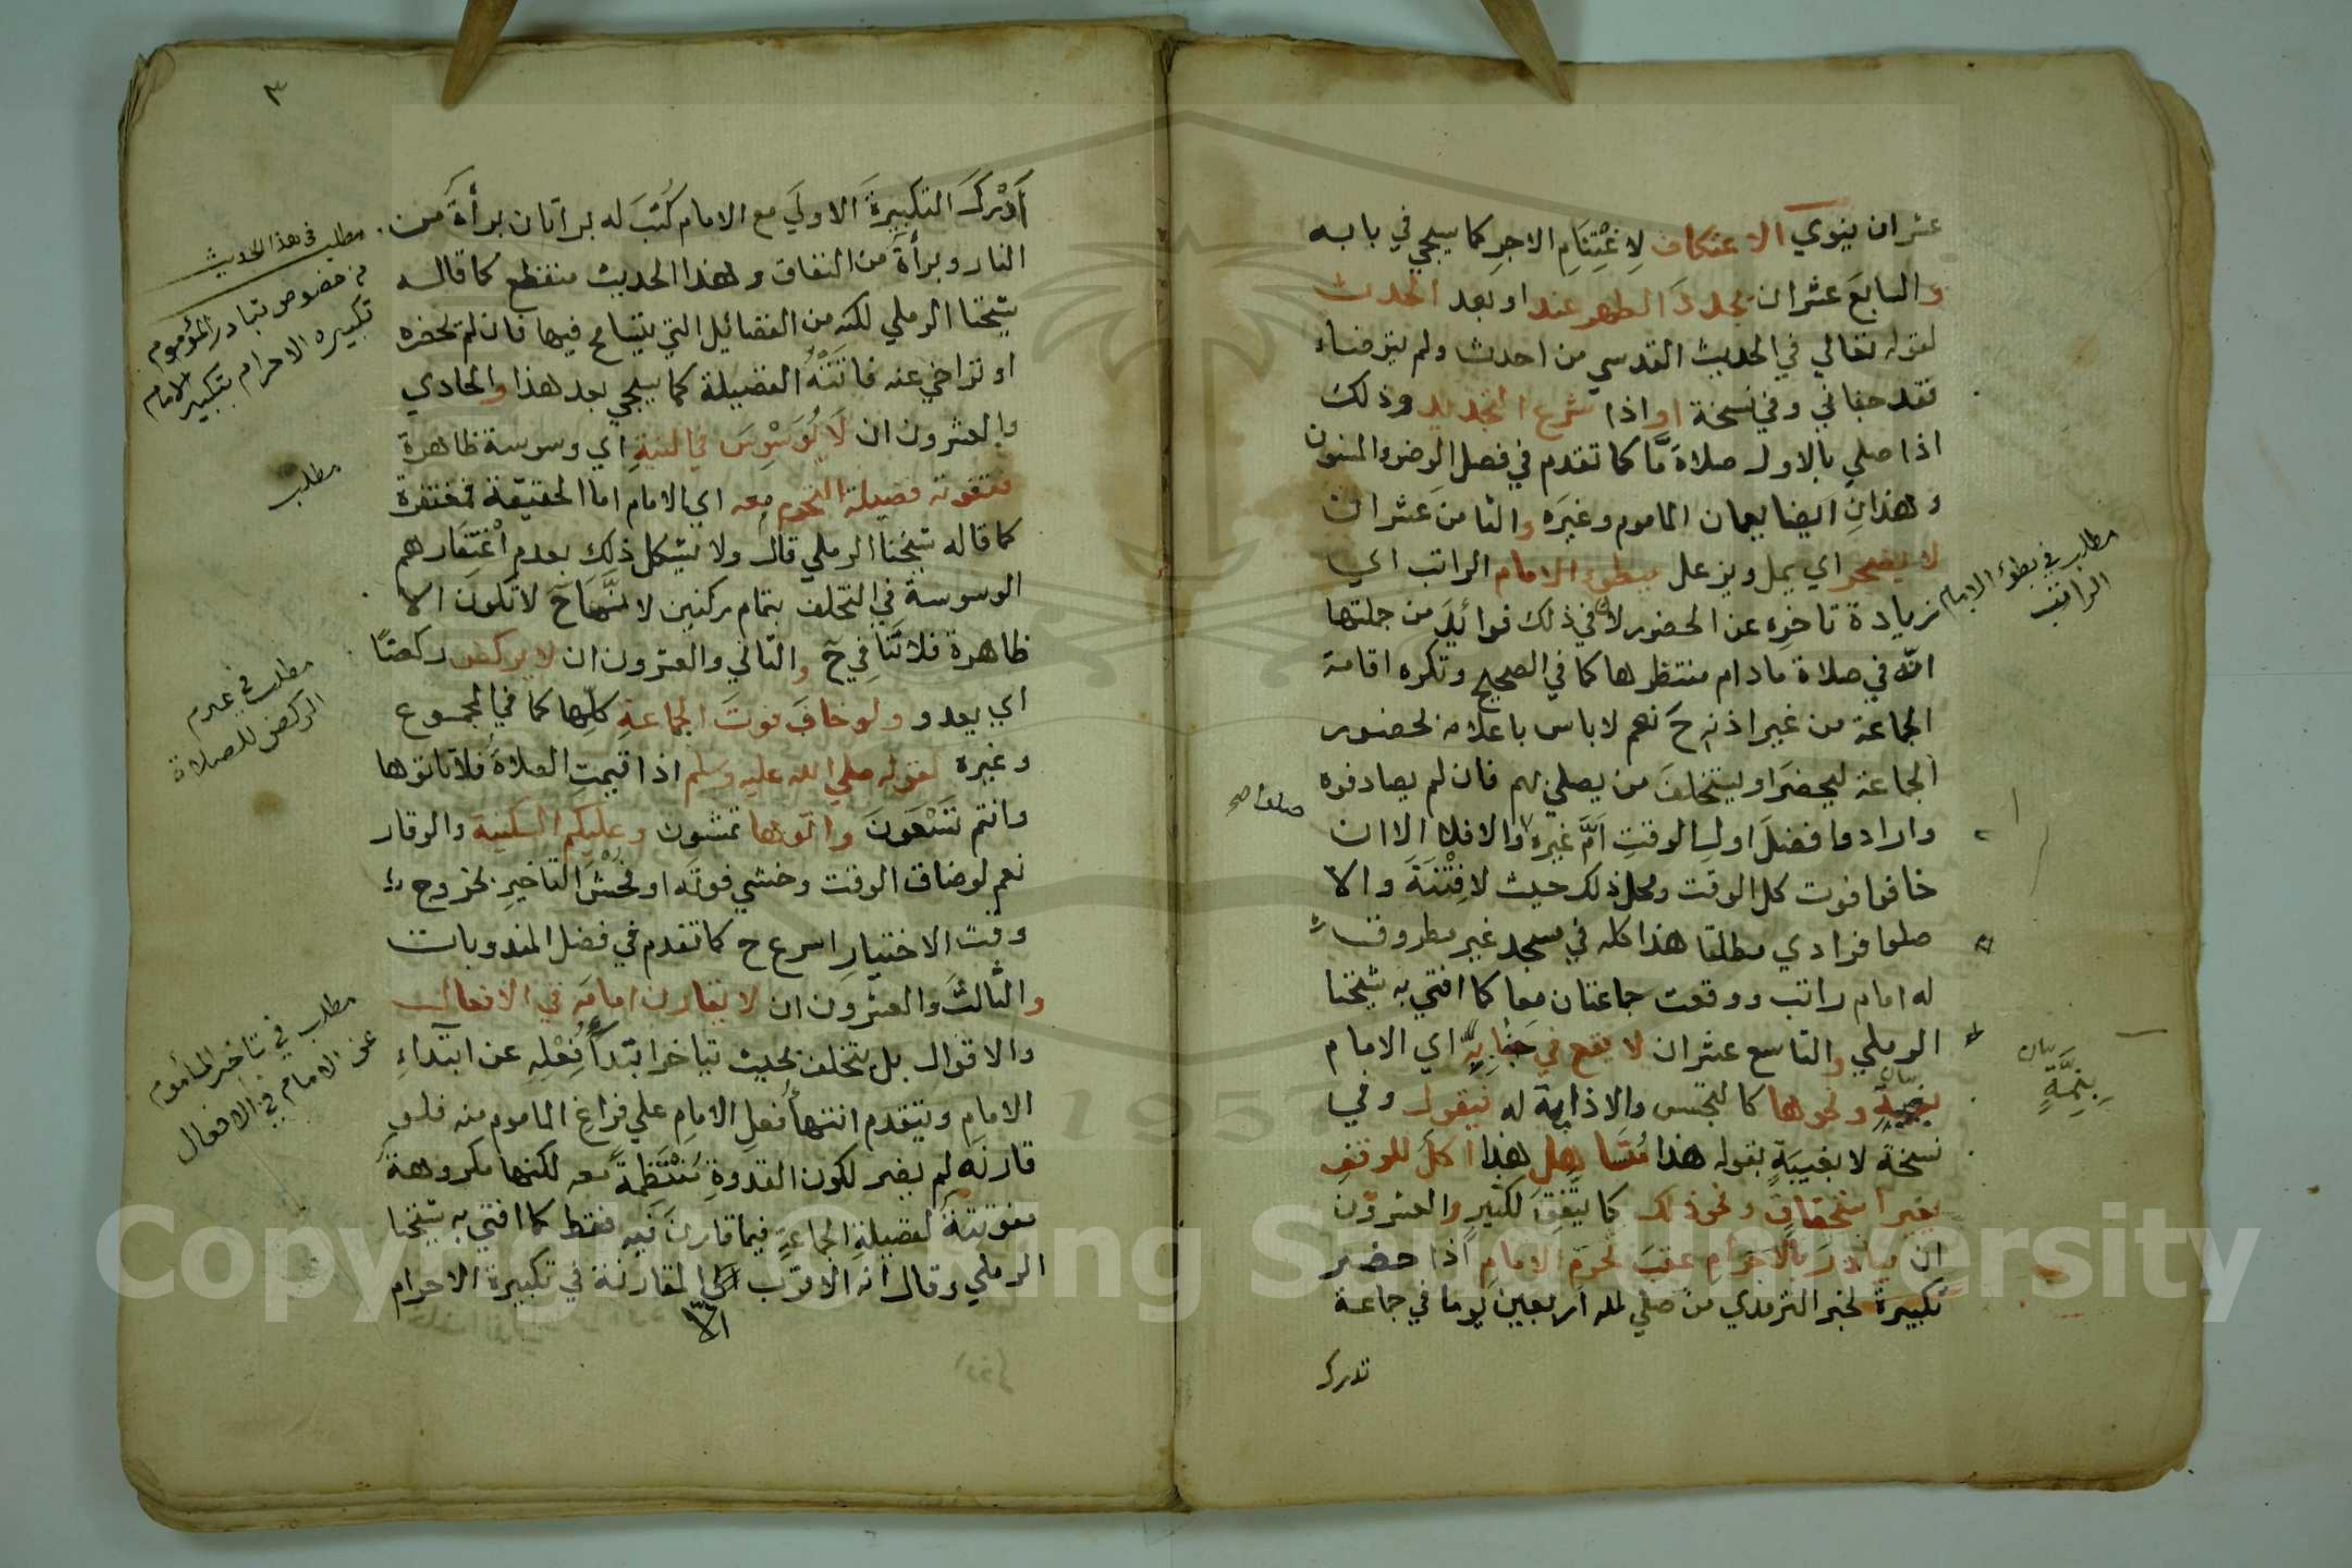 عشر ان ينوي الاعتكاف لِاغْتِنَامِ الاجرِ كما سيجي في بابه
والسابعَ عشر ان يجددَ الطهر عند او بعد الحدث
لقوله تعالي في الحديث القدسي من احدث ولم يتوضاء
فقد جفاني وفي نسخة او اذا شرع التجديد وذلك
اذا صلي بالاول صلاة مّا كما تقدم في فصل الوضو المسنون
وهذانِ ايضا يعمان الماموم وغيرَه والثامنَ عشر ان
لا يضجر اي يمل ويزعل ببطوء الامام الراتب اي
زيادة تاخرِه عن الحضور لان في ذلك فوائدَ من جملتها
انّه في صلاة مادام منتظرها كما في الصحيح وتكره اقامة
الجماعة من غير اذنه حَ نعم لا باس باعلامه لحضور
الجماعة ليحضرَ او يستخلفَ من يصلي بهم فان لم يصادفوه
وارادوا فضلَ اولِ الوقتِ اَمَّ غيره والا فلا الا ان
خافوا فوت كل الوقت ومحل ذلك حيث لا فِتْنَةَ والا
صلوا فرادي مطلقا هذا كله في مسجد غير مطروق
له امام راتب ووقعت جماعتان معا كما افتي به شيخنا
الرملي والتاسع عشر ان لا يقع في اي الامام
ونحوها كالتجسس والاذاية له فيقول وفي
نسخة لا بغيبَةٍ بقوله هذا هل هذا اكلَ للوقفِ
بغير استحقاقٍ ونحو ذلك كما يتّفِقُ لكثيرٍ والعشرون
ان يبادرَ بالاحرامِ عقبَ تحرمِ الامامِ اذا حضر
تكبيرةَ لخبر الترمذي من صلي لله اربعين يوما في جماعة
تدرك
مطلب في بطوء الامام
الراتب
بيان
بِنِمَّةٍ
٣
اَدْرَكَ التكبيرةَ الاولَي مع الامام كُتبَ له براتان براةَ من
النار وبراةَ من النفاق وهذا الحديث منقطع كما قاله
شيخنا الرملي لكنه من الفضائل التي يتسامح فيها فان لم يحضره
او تراخي عنه فاتَتْهُ الفضيلة كما سيجي بعد هذا والحادي
والعشرون ان لَا يُوَسْوِسَ في النيةِ اي وسوسة ظاهرة
فتفوته فضيلة التحرم معه اي الامام اما الحقيقة فمغتفرة
كما قاله شيخنا الرملي قال ولا يشكل ذلك بعدم اغْتِفَارهم
الوسوسةَ في التخلف بتمام ركنين لانَّهَا حَ لا تكون الا
ظاهرة فلا تَنَافِيَ حَ والثاني والعشرون ان لا يركض ركضًا
اي يعدو ولو خافَ فوتَ الجماعةِ كلِّها كما في المجموع
وغيره لقوله صلي الله عليه وسلم اذا اقيمتِ الصلاةَ فلا تاتوها
وانتم تَسْعَونَ واتوها تمشون وعليكم السكينة والوقار
نعم لو ضاق الوقت وخشي فوتَه او فُحْشَ التاخيرِ بخروج
وقت الاختيارِ اسرع ح كما تقدم في فصل المندوبات
والثالثَ والعشرون ان لا يقارن امامَه في الافعال
والاقوال بل يتخلف بحيث يتاخر ابتدآُ فِعْلِهِ عن ابتدآءِ
الامامِ ويتقدم انتهاُ فعلِ الامامِ علي فراغِ الماموم منه فلو
قارنَه لم يضر لكون القدوةِ مُنْتَظِمةً معه لكنها مكروهةَ
مفوتةَ لفضيلةِ الجماعةِ فيما قارنَ فيه فقط كما افتي به شيخنا
الرملي وقال انه الاقرب المقارنة في تكبيرة الاحرام
مطلب في هذا الحديث
من خصوص تبادر المؤموم
تكبيره الاحرام بتكبير الامام
مطلب
مطلب في عدم
الركض للصلاة
مطلب في تاخير المأموم
عن الامام في الافعال
Copyright © King Saud University
1957